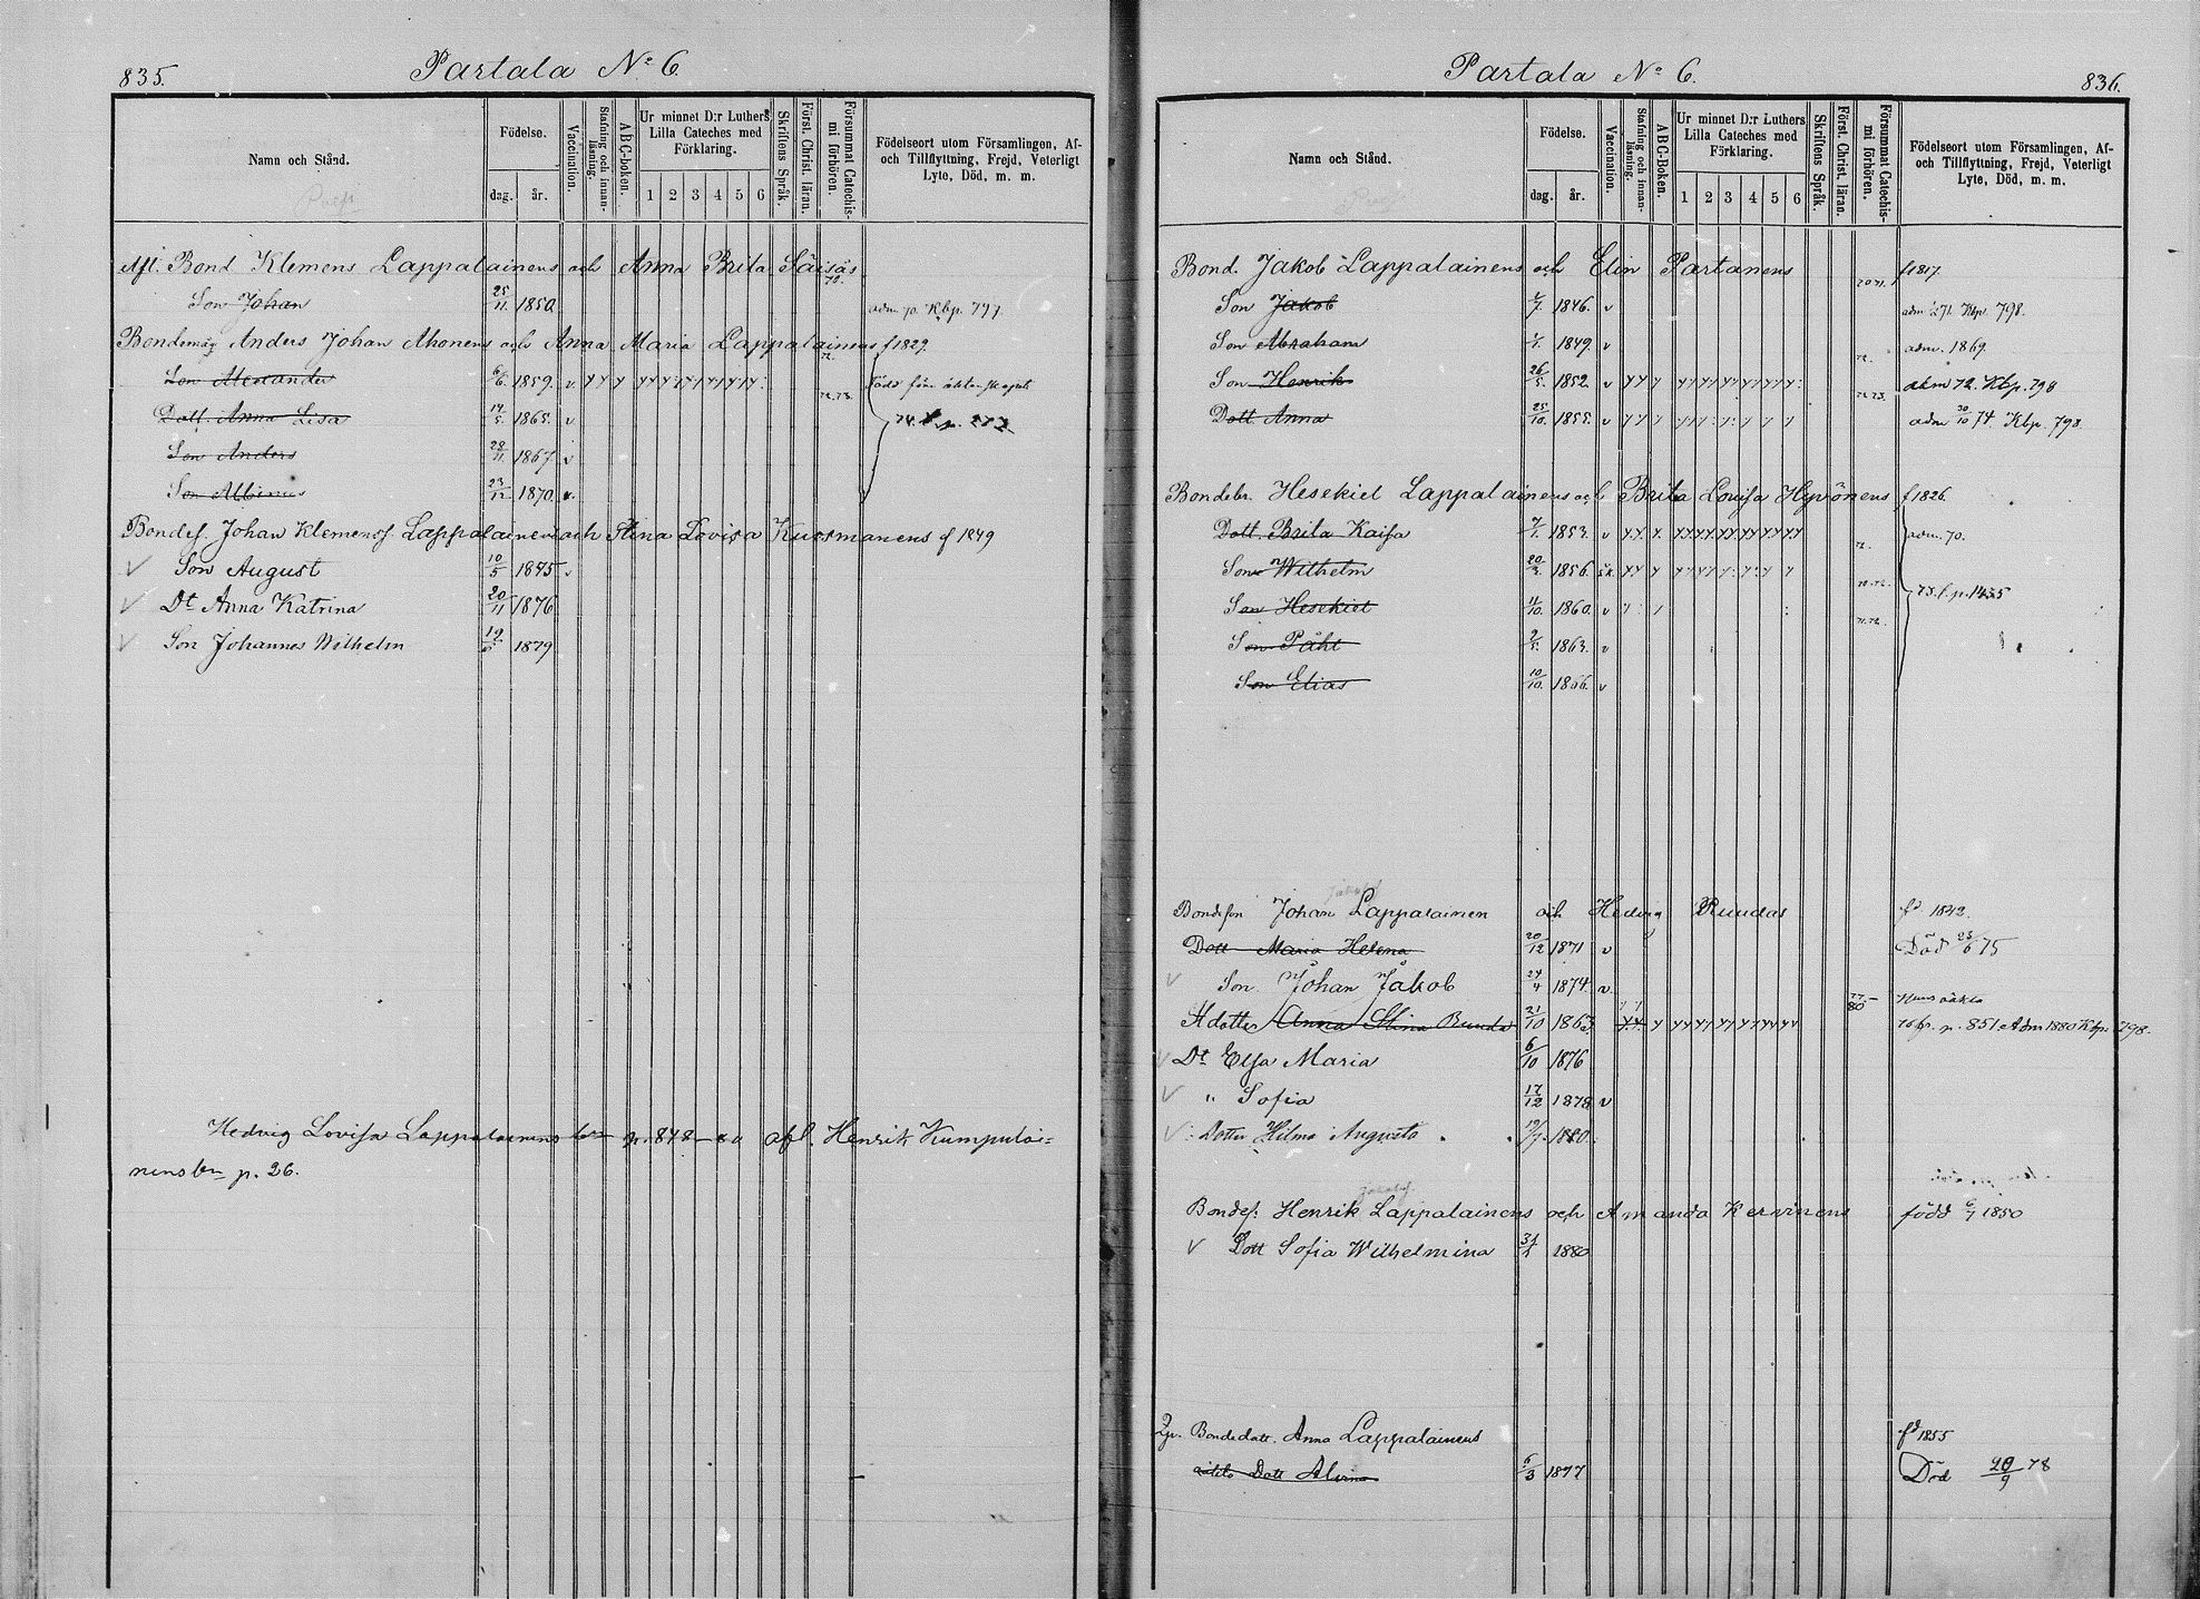 835.
Partala No 6.
Namn och Stånd.
Födelse.
dag.
år.
Vaccination.
Stafning och innanläsning.
ABC-boken.
Ur minnet D:r Luthers Lilla Cateches med Förklaring.
1 2 3 4 5 6
Skriftens Språk.
Först. Christ. läran.
Försummat Catechismi förhören.
Födelseort utom Församlingen, Af- och Tillflyttning, Frejd, Veterligt Lyte, Död, m. m.
Afl. Bond Klemens Lappalainens och Anna Brita Säisäs
70.
Son Johan 25/11. 1850. adm. 70. Kbp. 797.
Bondemåg Anders Johan Ahonens och Anna Maria Lappalainens f 1829.
72.
Son Alexander 6/6. 1859. v
72.73.
Dott. Anna Lisa 14/5. 1865. v 74.
Son Anders 28/11. 1867. v
Son Albinus 23/12 1870. v.
Bondes. Johan Klemenss. Lappalainen och Stina Lovisa Kuosmanens f 1849
Son August 10/5 1875 v
Dt Anna Katrina 20/11 1876
Son Johannes Wilhelm 1879
Hedvig Lovisa Lappalainens p. 848 afl. Henrik Kumpulai=
nens p. 26.
836.
Partala No 6.
Namn och Stånd.
Födelse.
dag.
år.
Vaccination.
Stafning och innanläsning.
ABC-Boken.
Ur minnet D:r Luthers Lilla Cateches med Förklaring.
1 2 3 4 5 6
Skriftens Språk.
Först. Christ. läran.
Försummat Catechismi förhören.
Födelseort utom Församlingen, Af- och Tillflyttning, Frejd, Veterligt Lyte, Död, m. m.
Bond. Jakob Lappalainens och Elin Partanens f 1817.
Son Jakob 1846. v adm 71. Kbp. 798.
Son Abraham 1849. v adm. 1869.
72.
Son Henrik 26/5. 1852 v adm 72. Kbp. 798
72 73.
Dott. Anna 25/10. 1855. v adm 30/10 74. Kbp. 798.
Bondebr. Hesekiel Lappalainens och Brita Lovisa Hyvönens f 1826.
Dott. Brita Kaisa 7/1. 1853. v adm. 70.
72.
Son Wilhelm 1856.
Son Hesekiel 11/10. 1860. v
71.72.
Son Påhl 1863. v
Son Elias 10/10. 1866. v
Bondeson Johan Lappalainen och Hedvig Ruudas fd 1842.
Dott Maria Helena 20/12 1871 v Död 23/6 75
Son Johan Jakob 24/4 1874. v.
Anna Stina 21/10 1863 p. 851. Adm 1880 Kbp. 798.
Dt Elsa Maria 6/10 1876
" Sofia 17/12 1878 v
Dotter Hilma Augusta 1880.
Bondes: Henrik Lappalainens och Amanda Kervinens född 6/7 1850
Dott Sofia Wilhelmina 1880
Bondedott. Anna Lappalainens fd 1855
Dott Alvina 5/3 1877 Död 20/9 78